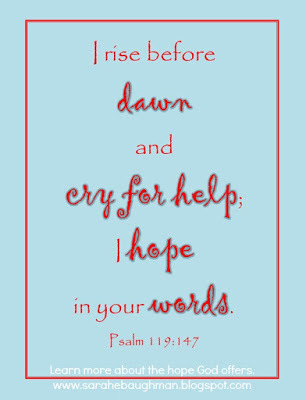 I rise before
dawn
and
cry for help;
I hope
in your words.
Psalm 119:147
Learn more about the hope God offers.
www.sarahebaughman.blogspot.com